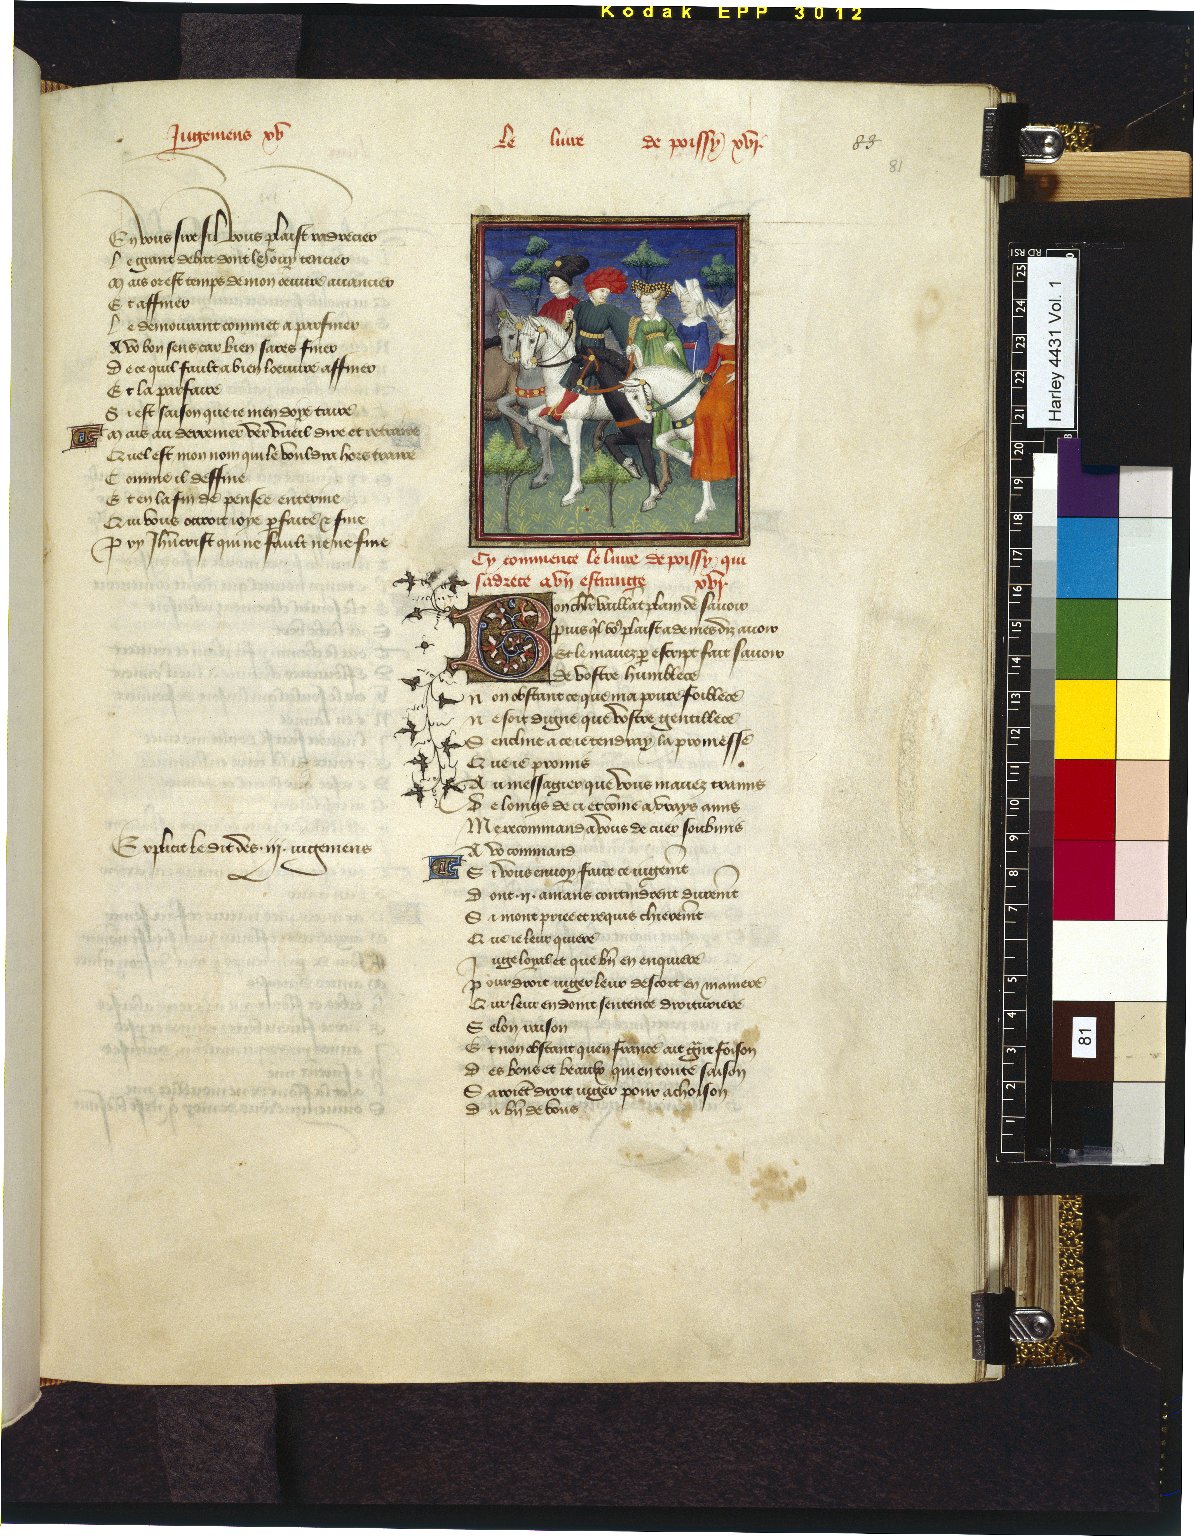 Kodak EPP 3012
Jugemens xv
Le livre de poissy xvi.
83
81
En vous sire sil vous plaist radrecier
Le grant debat dont le oy tencier
Mais or est temps de mon oeuvre avancier
Et affiner
Le demourant commet a parfiner
A vo bon sens car bien sares finer
De ce quil fault a bien loeuvre affiner
Et la parfaire
Si est saison que ie men doye taire
Mais au derrenier ver vueil dire et retraire
Quel est mon nom qui le vouldra hors traire
Comme il deffine
Et en la fin de pensee enterine
Qui vous ottroit ioye pfaite & fine
Pry Jhucrist qui ne fault ne ne fine
Explicit le dit des .iij. iugemens
Cy commence le livre de poissy qui
sadrece a un estrange xvi.
Bon chlr vaillat plain de savoir
Puis ql vo plaist a de mes diz avoir
Et le mavez p escript fait savoir
De vostre humblece
Non obstant ce que ma povre foiblece
Ne soit digne que vostre gentillece
Sencline a ce ie tendray la promesse
Que ie promis
Au messagier que vous mavez tramis
De loings de ci et come a vrays amis
Me recommand a vous de cuer soubmis
A vo command
Si vous envoy faire ce iugemet
Dont .ii. amans contindrent duremt
Si mont priee et requis chieremt
Que ie leur quiere
Juge loyal et que bn en enquiere
Pour droit iuger leur descort en maniere
Qui leur en doint sentence droituriere
Selon raison
Et non obstant quen france ait grt foison
Des bons et beaulx qui en toute saison
Saroiet droit iugier pour achoison
Du bn de vous
Harley 4431 Vol. 1
25
24
23
22
21
20
19
18
17
16
15
14
13
12
11
10
9
8
7
5
4
3
2
1
81